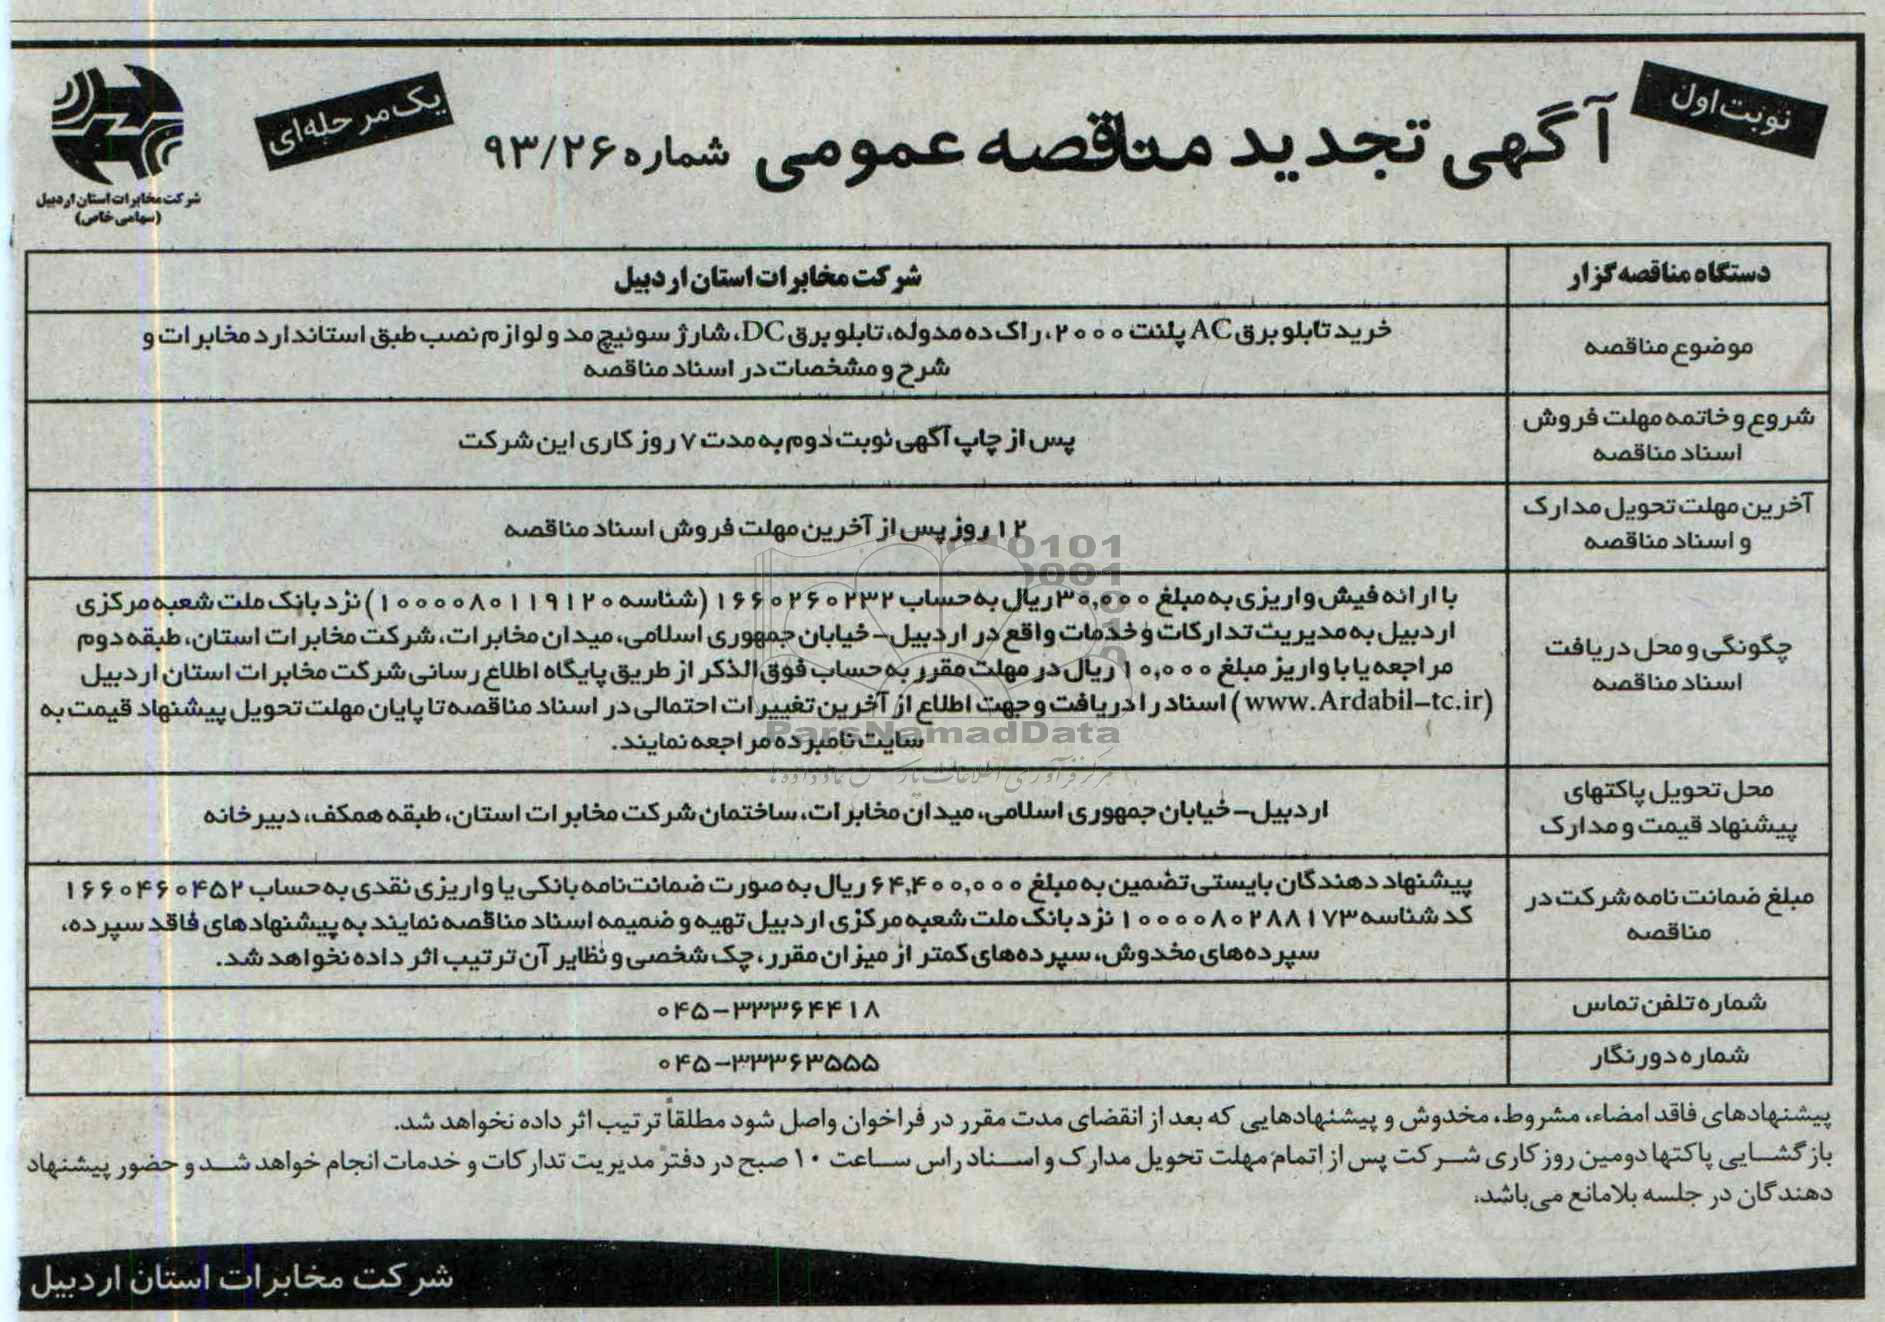 نوبت اول
آگهی تجدید مناقصه عمومی شماره ۹۳/۲۶
یک مرحله‌ای
شرکت مخابرات استان اردبیل
(سهامی خاص)
دستگاه مناقصه گزار
شرکت مخابرات استان اردبیل
موضوع مناقصه
خرید تابلو برق AC پلنت ۲۰۰۰، راک ده مدوله، تابلو برق DC، شارژ سوئیچ مد و لوازم نصب طبق استاندارد مخابرات و
شرح و مشخصات در اسناد مناقصه
شروع و خاتمه مهلت فروش
اسناد مناقصه
پس از چاپ آگهی نوبت دوم به مدت ۷ روز کاری این شرکت
آخرین مهلت تحویل مدارک
و اسناد مناقصه
۱۲ روز پس از آخرین مهلت فروش اسناد مناقصه
چگونگی و محل دریافت
اسناد مناقصه
با ارائه فیش واریزی به مبلغ ۳۰,۰۰۰ ریال به حساب ۱۶۶۰۲۶۰۲۳۲ (شناسه ۱۰۰۰۰۸۰۱۱۹۱۲۰) نزد بانک ملت شعبه مرکزی
اردبیل به مدیریت تدارکات و خدمات واقع در اردبیل – خیابان جمهوری اسلامی، میدان مخابرات، شرکت مخابرات استان، طبقه دوم
مراجعه یا با واریز مبلغ ۱۰,۰۰۰ ریال در مهلت مقرر به حساب فوق‌الذکر از طریق پایگاه اطلاع رسانی شرکت مخابرات استان اردبیل
(www.Ardabil-tc.ir) اسناد را دریافت و جهت اطلاع از آخرین تغییرات احتمالی در اسناد مناقصه تا پایان مهلت تحویل پیشنهاد قیمت به
سایت نامبرده مراجعه نمایند.
محل تحویل پاکتهای
پیشنهاد قیمت و مدارک
اردبیل – خیابان جمهوری اسلامی، میدان مخابرات، ساختمان شرکت مخابرات استان، طبقه همکف، دبیرخانه
مبلغ ضمانت نامه شرکت در
مناقصه
پیشنهاد دهندگان بایستی تضمین به مبلغ ۶۴,۴۰۰,۰۰۰ ریال به صورت ضمانت‌نامه بانکی یا واریزی نقدی به حساب ۱۶۶۰۴۶۰۴۵۲
کد شناسه ۱۰۰۰۰۸۰۲۸۸۱۷۳ نزد بانک ملت شعبه مرکزی اردبیل تهیه و ضمیمه اسناد مناقصه نمایند به پیشنهادهای فاقد سپرده،
سپرده‌های مخدوش، سپرده‌های کمتر از میزان مقرر، چک شخصی و نظایر آن ترتیب اثر داده نخواهد شد.
شماره تلفن تماس
۰۴۵-۳۳۳۶۴۴۱۸
شماره دورنگار
۰۴۵-۳۳۳۶۳۵۵۵
پیشنهادهای فاقد امضاء، مشروط، مخدوش و پیشنهادهایی که بعد از انقضای مدت مقرر در فراخوان واصل شود مطلقاً ترتیب اثر داده نخواهد شد.
بازگشایی پاکتها دومین روز کاری شرکت پس از اتمام مهلت تحویل مدارک و اسناد راس ساعت ۱۰ صبح در دفتر مدیریت تدارکات و خدمات انجام خواهد شد و حضور پیشنهاد
دهندگان در جلسه بلامانع می‌باشد.
شرکت مخابرات استان اردبیل
ParsNamadData